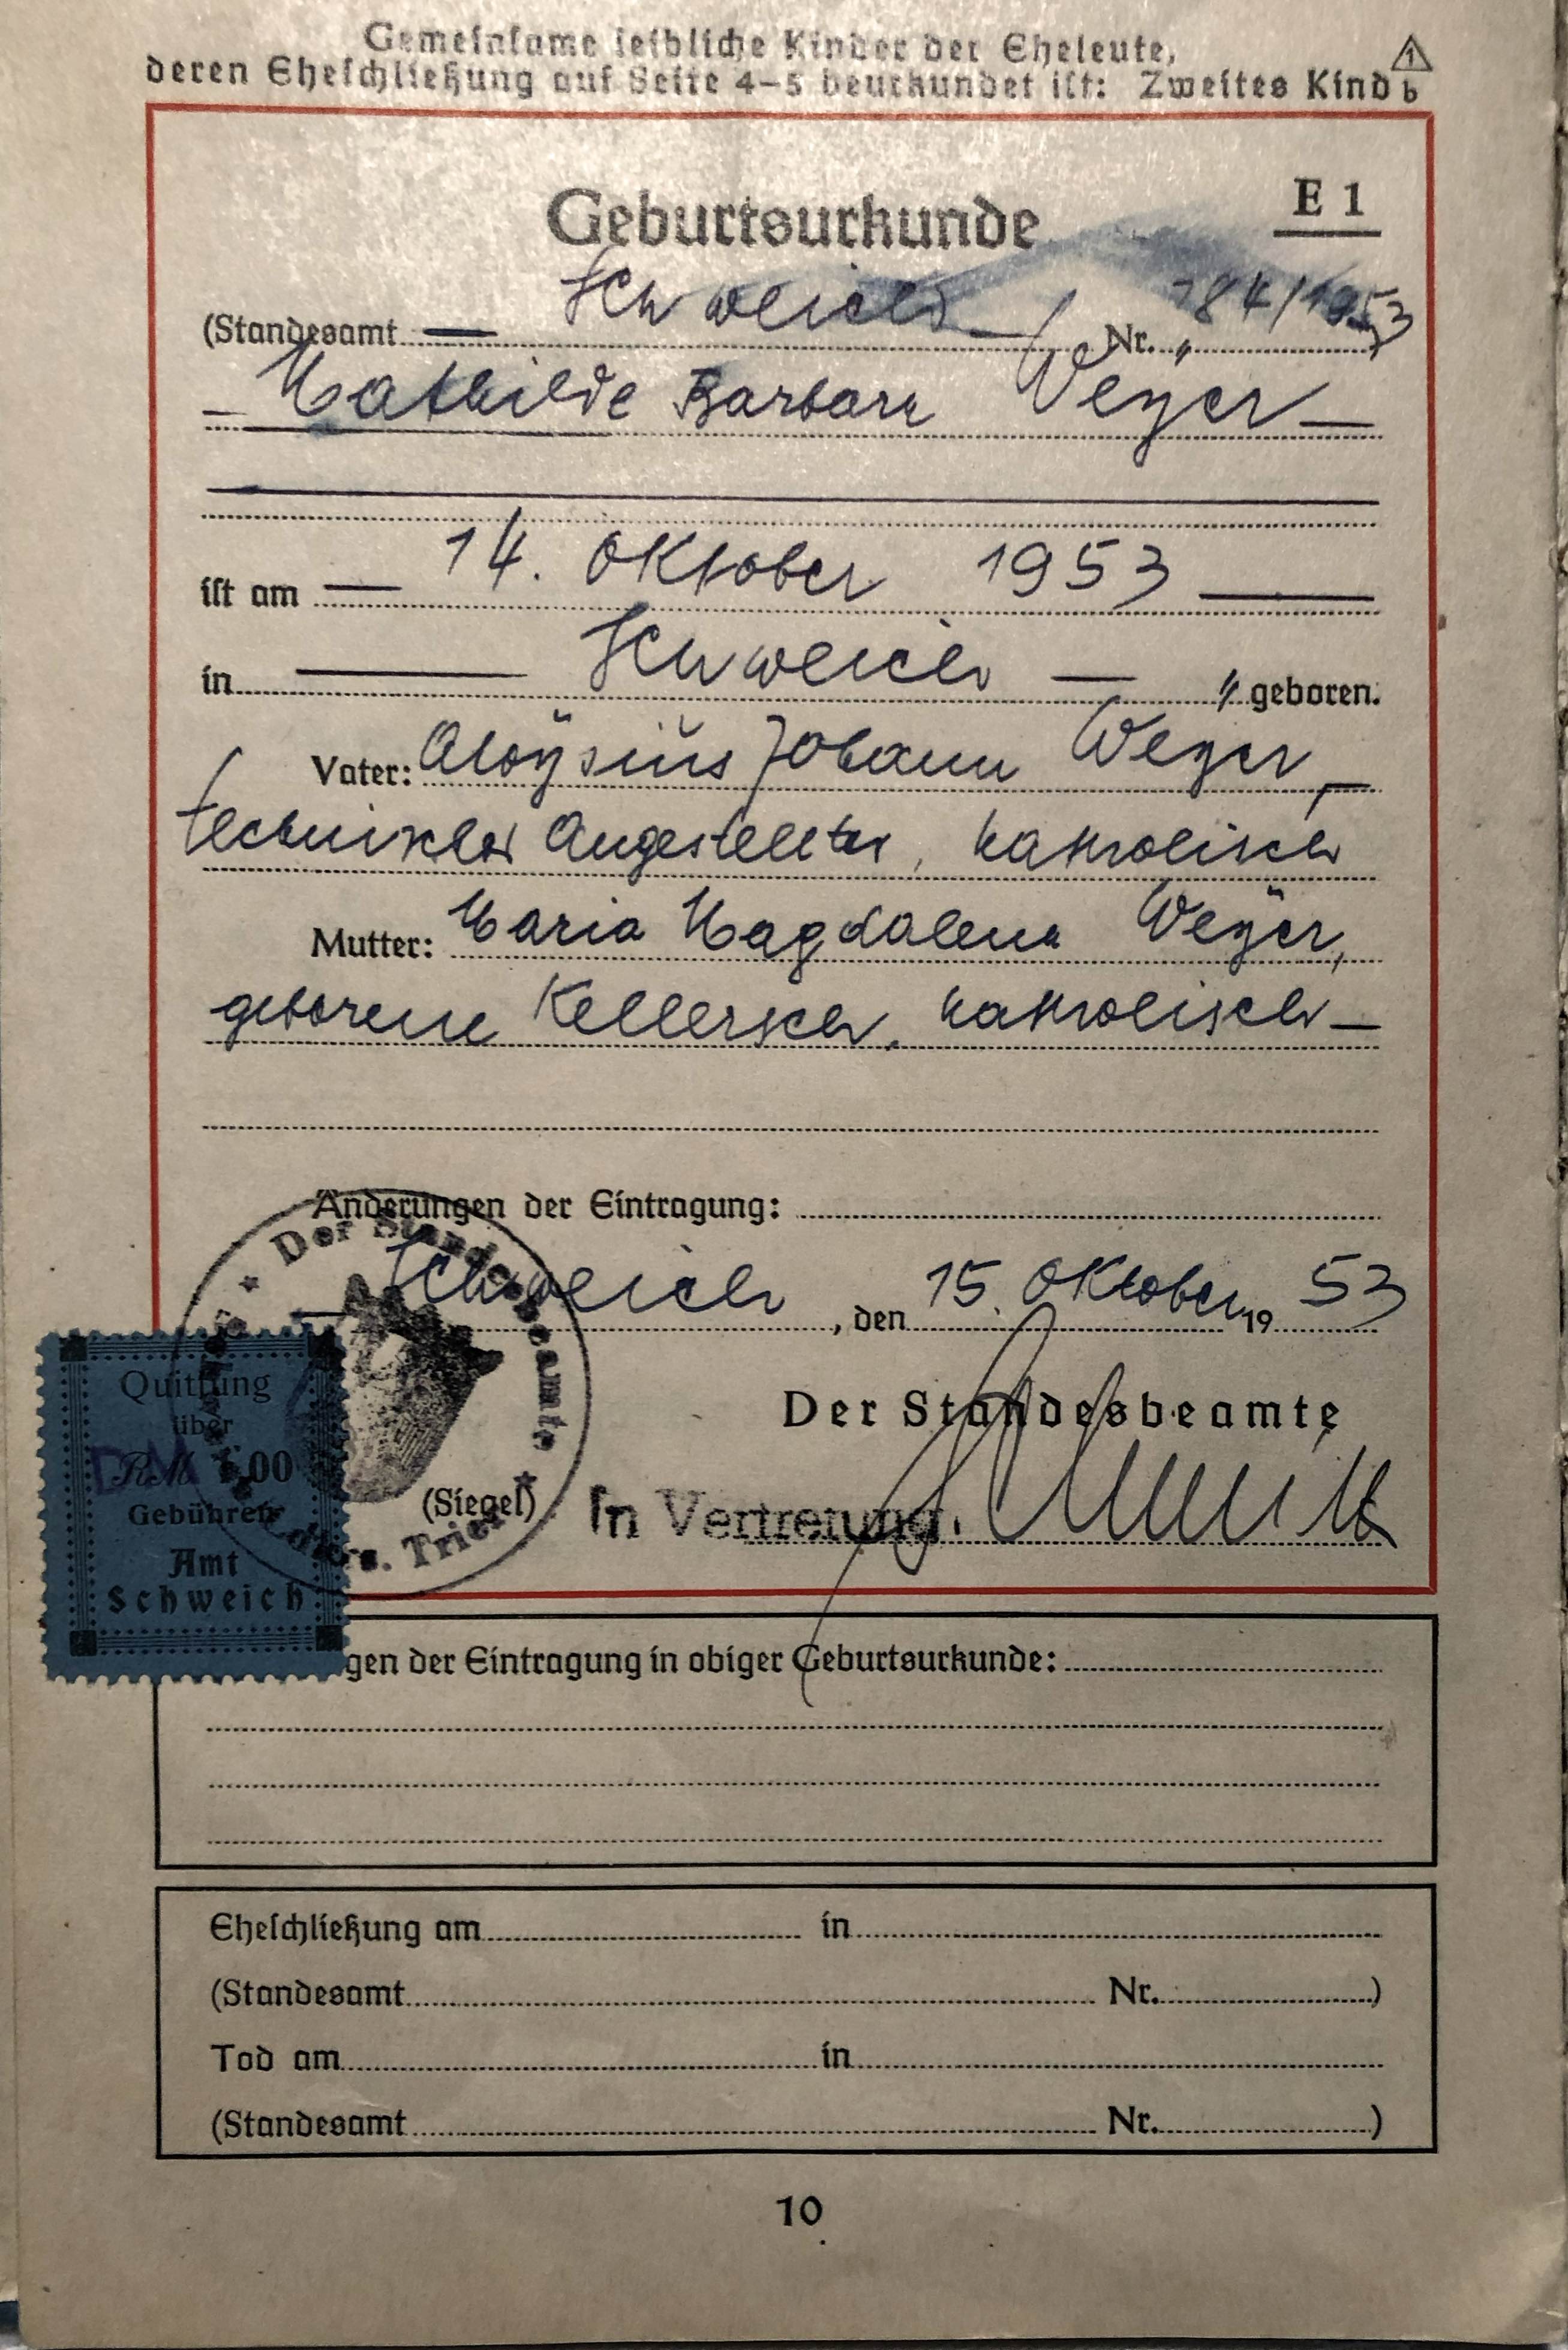 Gemeinsame leibliche Kinder der Eheleute,
deren Eheschließung auf Seite 4–5 beurkundet ist: Zweites Kind
1
b
Geburtsurkunde
E 1
(Standesamt Schweich Nr. 184/1953)
Mathilde Barbara Weyer
ist am 14. Oktober 1953
in Schweich geboren.
Vater: Aloÿsius Johann Weyer,
technischer Angestellter, katholisch
Mutter: Maria Magdalena Weÿer,
geborene Kellersch, katholisch
Änderungen der Eintragung:
Schweich, den 15. Oktober 1953
Der Standesbeamte
(Siegel)
In Vertretung.
Der Standesbeamte
Trier
Quittung
über
DM
RM 1,00
Gebühren
Amt
Schweich
gen der Eintragung in obiger Geburtsurkunde:
Eheschließung am in
(Standesamt Nr. )
Tod am in
(Standesamt Nr. )
10